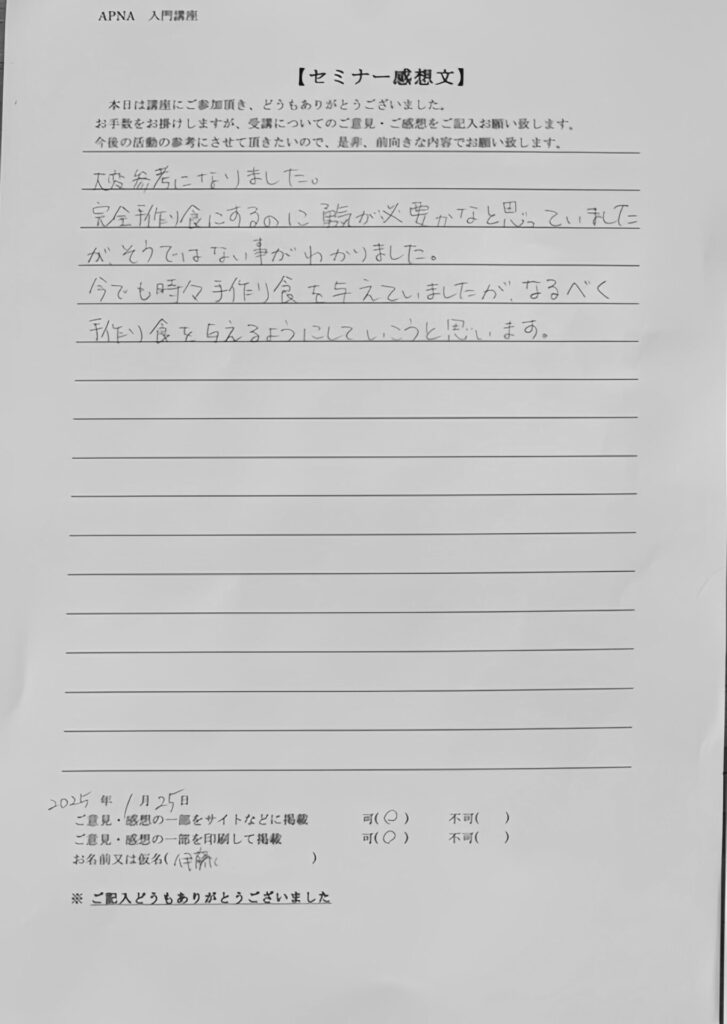 APNA 入門講座
【セミナー感想文】
本日は講座にご参加頂き、どうもありがとうございました。
お手数をお掛けしますが、受講についてのご意見・ご感想をご記入お願い致します。
今後の活動の参考にさせて頂きたいので、是非、前向きな内容でお願い致します。
大変参考になりました。
完全手作り食にするのに勇気が必要かなと思っていました
が、そうではない事がわかりました。
今でも時々手作り食を与えていましたが、なるべく
手作り食を与えるようにしていこうと思います。
2025 年 1 月 25 日
ご意見・感想の一部をサイトなどに掲載 可(○) 不可( )
ご意見・感想の一部を印刷して掲載 可(○) 不可( )
お名前又は仮名( 伊藤 )
※ ご記入どうもありがとうございました